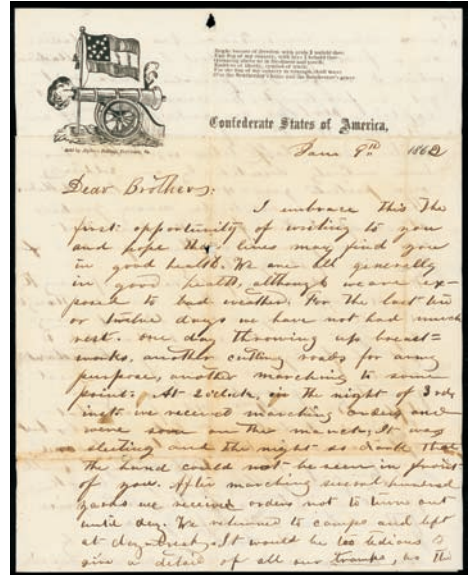 Confederate States of America,
Jany 9th 1862
Dear Brothers:
I embrace this the
first opportunity of writing to you
and hope these lines may find you
in good health. We are all generally
in good health, although we are ex-
posed to bad weather. For the last ten
or twelve days we have not had much
rest. One day throwing up breast=
works, another cutting roads for army
purpose, another marching to some
point. At 2 oclock, on the night of 3rd
inst. we received marching orders and
were soon on the march. It was
sleeting and the night so dark that
the hand could not be seen in front
of you. After marching several hundred
yards we received orders not to turn out
until day. We returned to camps and left
at day-break. It would be too tedious to
give a detail of all our tramps, as the